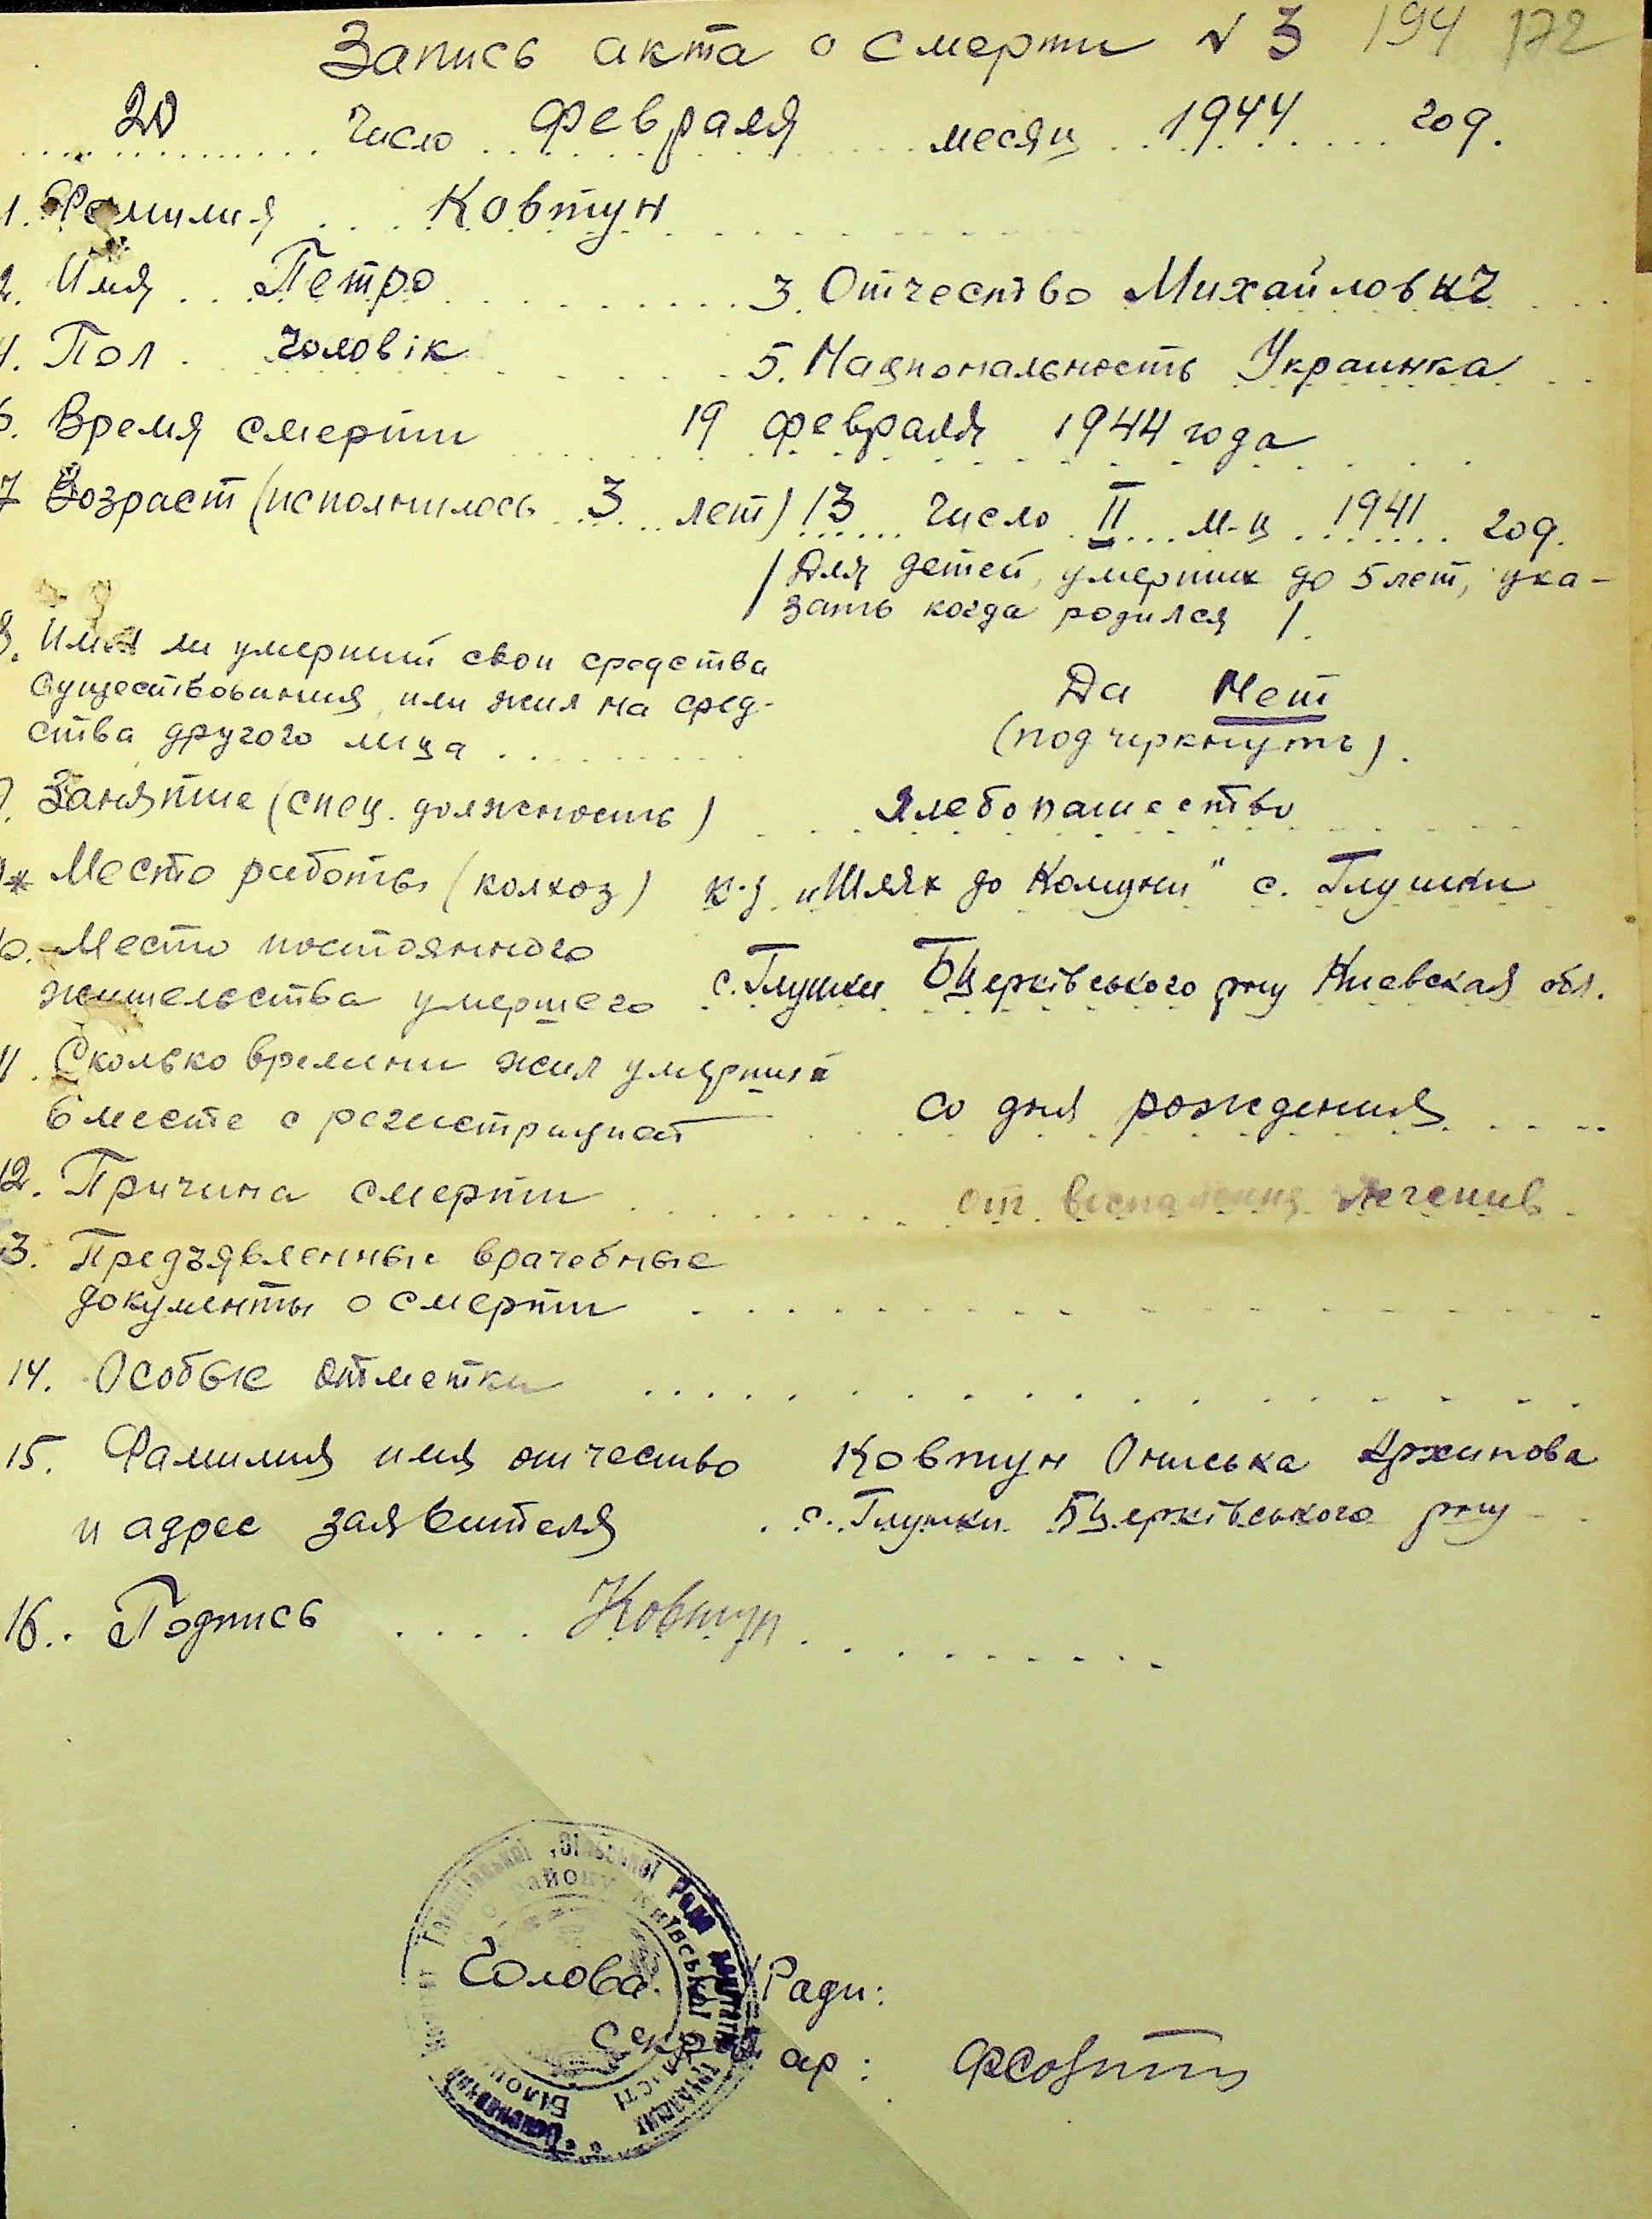 Запись акта о смерти № 3 194 172
20 число февраля месяц 1944 год.
1. Фамилия Ковтун
2. Имя Петро 3. Отчество Михайлович
4. Пол чоловік 5. Национальность Украинка
6. Время смерти 19 февраля 1944 года
7 Возраст (исполнилось 3 лет) 13 число II м-ц 1941 год.
/ Для детей, умерших до 5 лет, ука-
зать когда родился /.
8. Имел ли умерший свои средства
существования или жил на сред-
ства другого лица
Да Нет
(подчеркнуть).
9. Занятие (спец. должность) хлебопашество
* Место работы (колхоз) к-з „Шлях до Комуни" с. Глушки
10. Место постоянного
жительства умершего с. Глушки Бцерківського р-ну Киевская обл.
11. Сколько времени жил умерший
вместе с регистрацией со дня рождения
12. Причина смерти от воспаления легенів
13. Предъявленные врачебные
документы о смерти
14. Особые отметки
15. Фамилия имя отчество Ковтун Ониська Архипова
и адрес заявителя с. Глушки Бцерківського р-ну
16. Подпись Ковтун
Голова Ради:
Секретар: